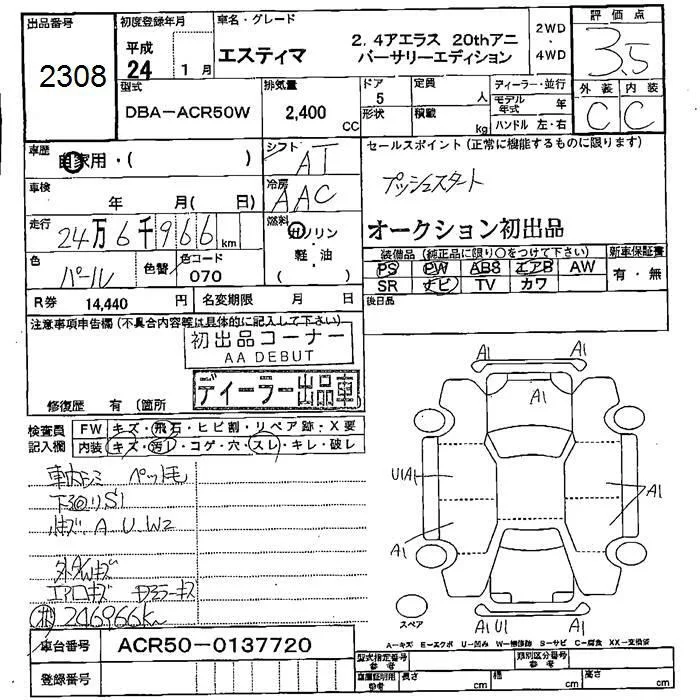 出品番号
2308
初度登録年月
平成
24 1月
車名・グレード
エスティマ
2.4アエラス 20thアニ
バーサリーエディション
2WD
4WD
評価点
3.5
型式
DBA-ACR50W
排気量
2,400
CC
ドア
5
形状
定員
人
積載
kg
ディーラー・並行
モデル年式 年
ハンドル 左・右
外装 内装
C C
車歴
自家用・( )
シフト
AT
セールスポイント(正常に機能するものに限ります)
プッシュスタート
車検
年 月( 日)
冷房
AAC
走行
24万6千966km
燃料
ガソリン
・
軽・油
オークション初出品
装備品(純正品に限り○をつけて下さい)
新車保証書
PS PW ABS エアB AW
SR ナビ TV カワ
有・無
色
パール
色替
色コード
070
R券 14,440 円
名変期限 月 日
後日品
注意事項申告欄(不具合内容等は具体的に記入して下さい)
初出品コーナー
AA DEBUT
ディーラー出品車
修復歴 有 (箇所
検査員
記入欄
FW キズ・飛石・ヒビ割・リペア跡・X要
内装 キズ・汚レ・コゲ・穴・スレ・キレ・破レ
ペット毛
下回りS1
A U W2
外A/Wキズ
エアロキズ
246966km
A1 A1
A1
U1A1
A1
A1
スペア
A1U1 A1
A-キズ E-エクボ U-凹み W-補修跡 S-サビ C-腐食 XX-交換済
車台番号
ACR50-0137720
登録番号
型式指定番号
参考
類別区分番号
参考
車庫証明用
参考
長さ cm
幅 cm
高さ cm